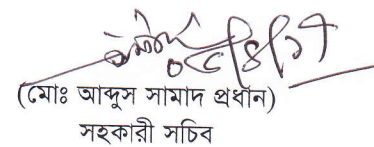 (মোঃ আব্দুস সামাদ প্রধান)
সহকারী সচিব